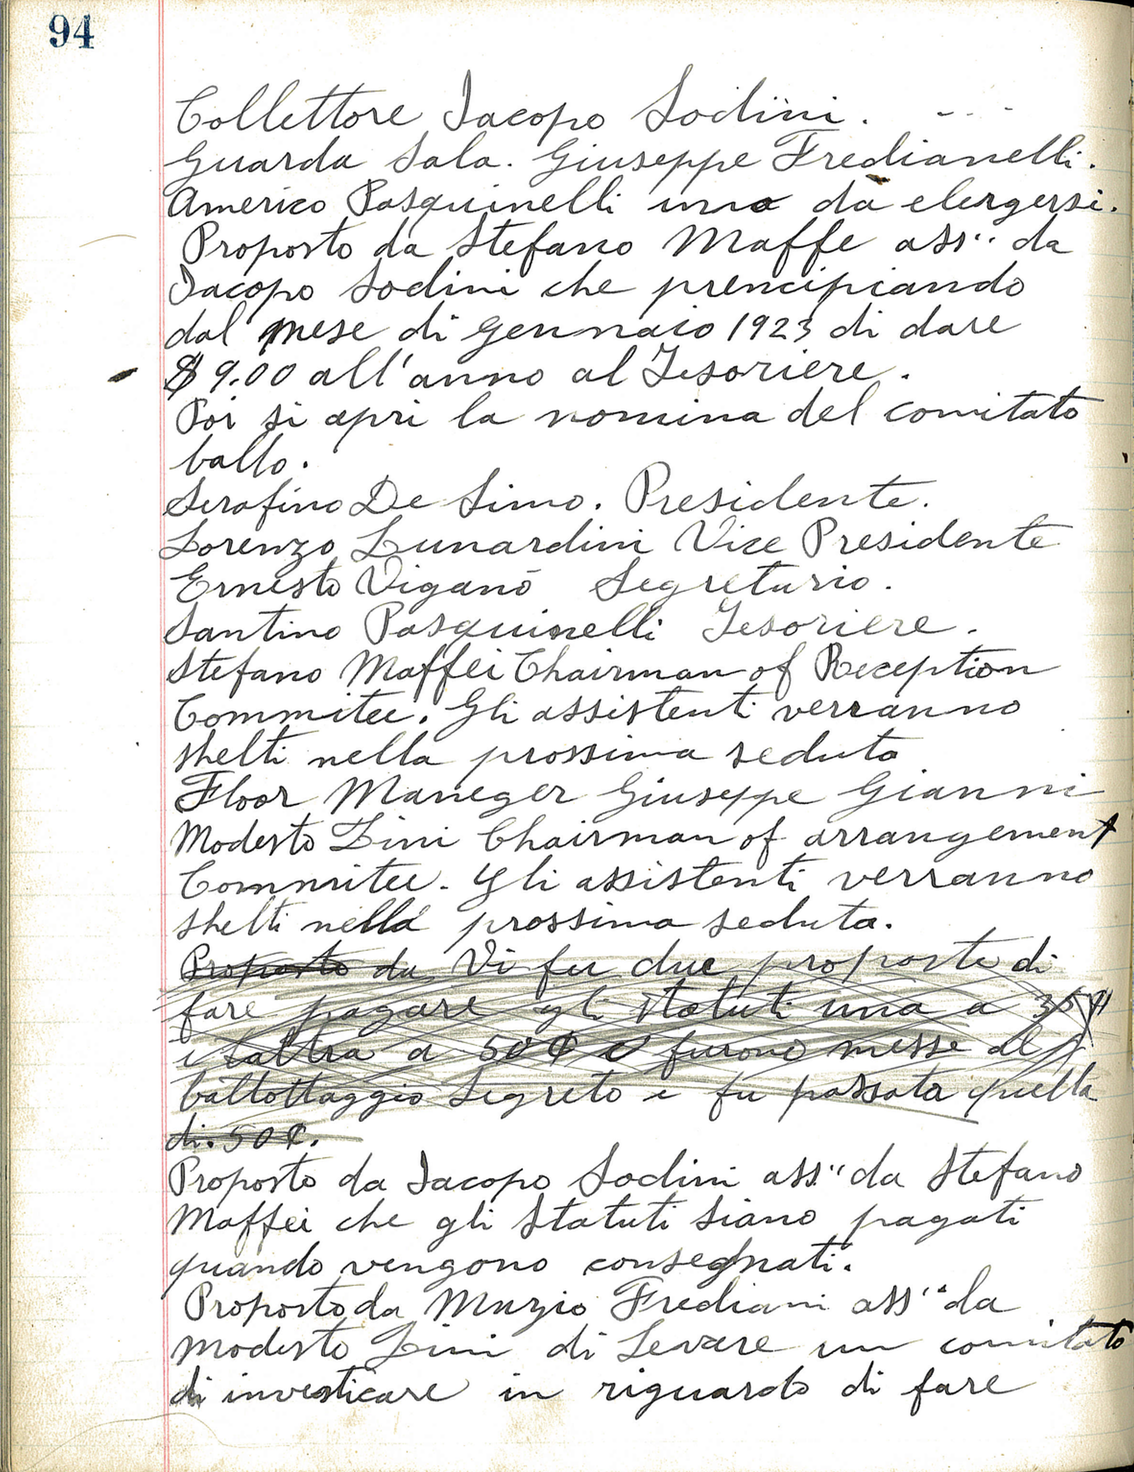 94
Collettore Jacopo Sodini. - - -
Guarda Sala. Giuseppe Fredianelli.
Americo Pasquinelli uno da elergersi.
Proposto da Stefano Maffe ass'' da
Jacopo Sodini che prencipiando
dal mese di Gennaio 1923 di dare
$9.00 all'anno al Tesoriere.
Poi si apri la nomina del comitato
ballo.
Serafino De Simo. Presidente.
Lorenzo Lunardini Vice Presidente
Ernesto Viganò Segretario.
Santino Pasquinelli Tesoriere.
Stefano Maffei Chairman of Reception
Commitee. Gli assistenti verranno
shelti nella prossima seduta
Floor Maneger Giuseppe Gianni
Modesto Lini Chairman of arrangement
Commitee. Gli assistenti verranno
shelti nella prossima seduta.
Proposto da Vi fu due proposte di
fare pagare gli statuti una a 35¢
e l'altra a 50¢ e furono messe al
ballottaggio Segreto e fu passata quella
di. 50¢.
Proposto da Jacopo Sodini ass'' da Stefano
Maffei che gli Statuti siano pagati
quando vengono consegnati.
Proposto da Muzio Frediani ass'' da
Modesto Lini di Levare un comitato
di investicare in riguardo di fare